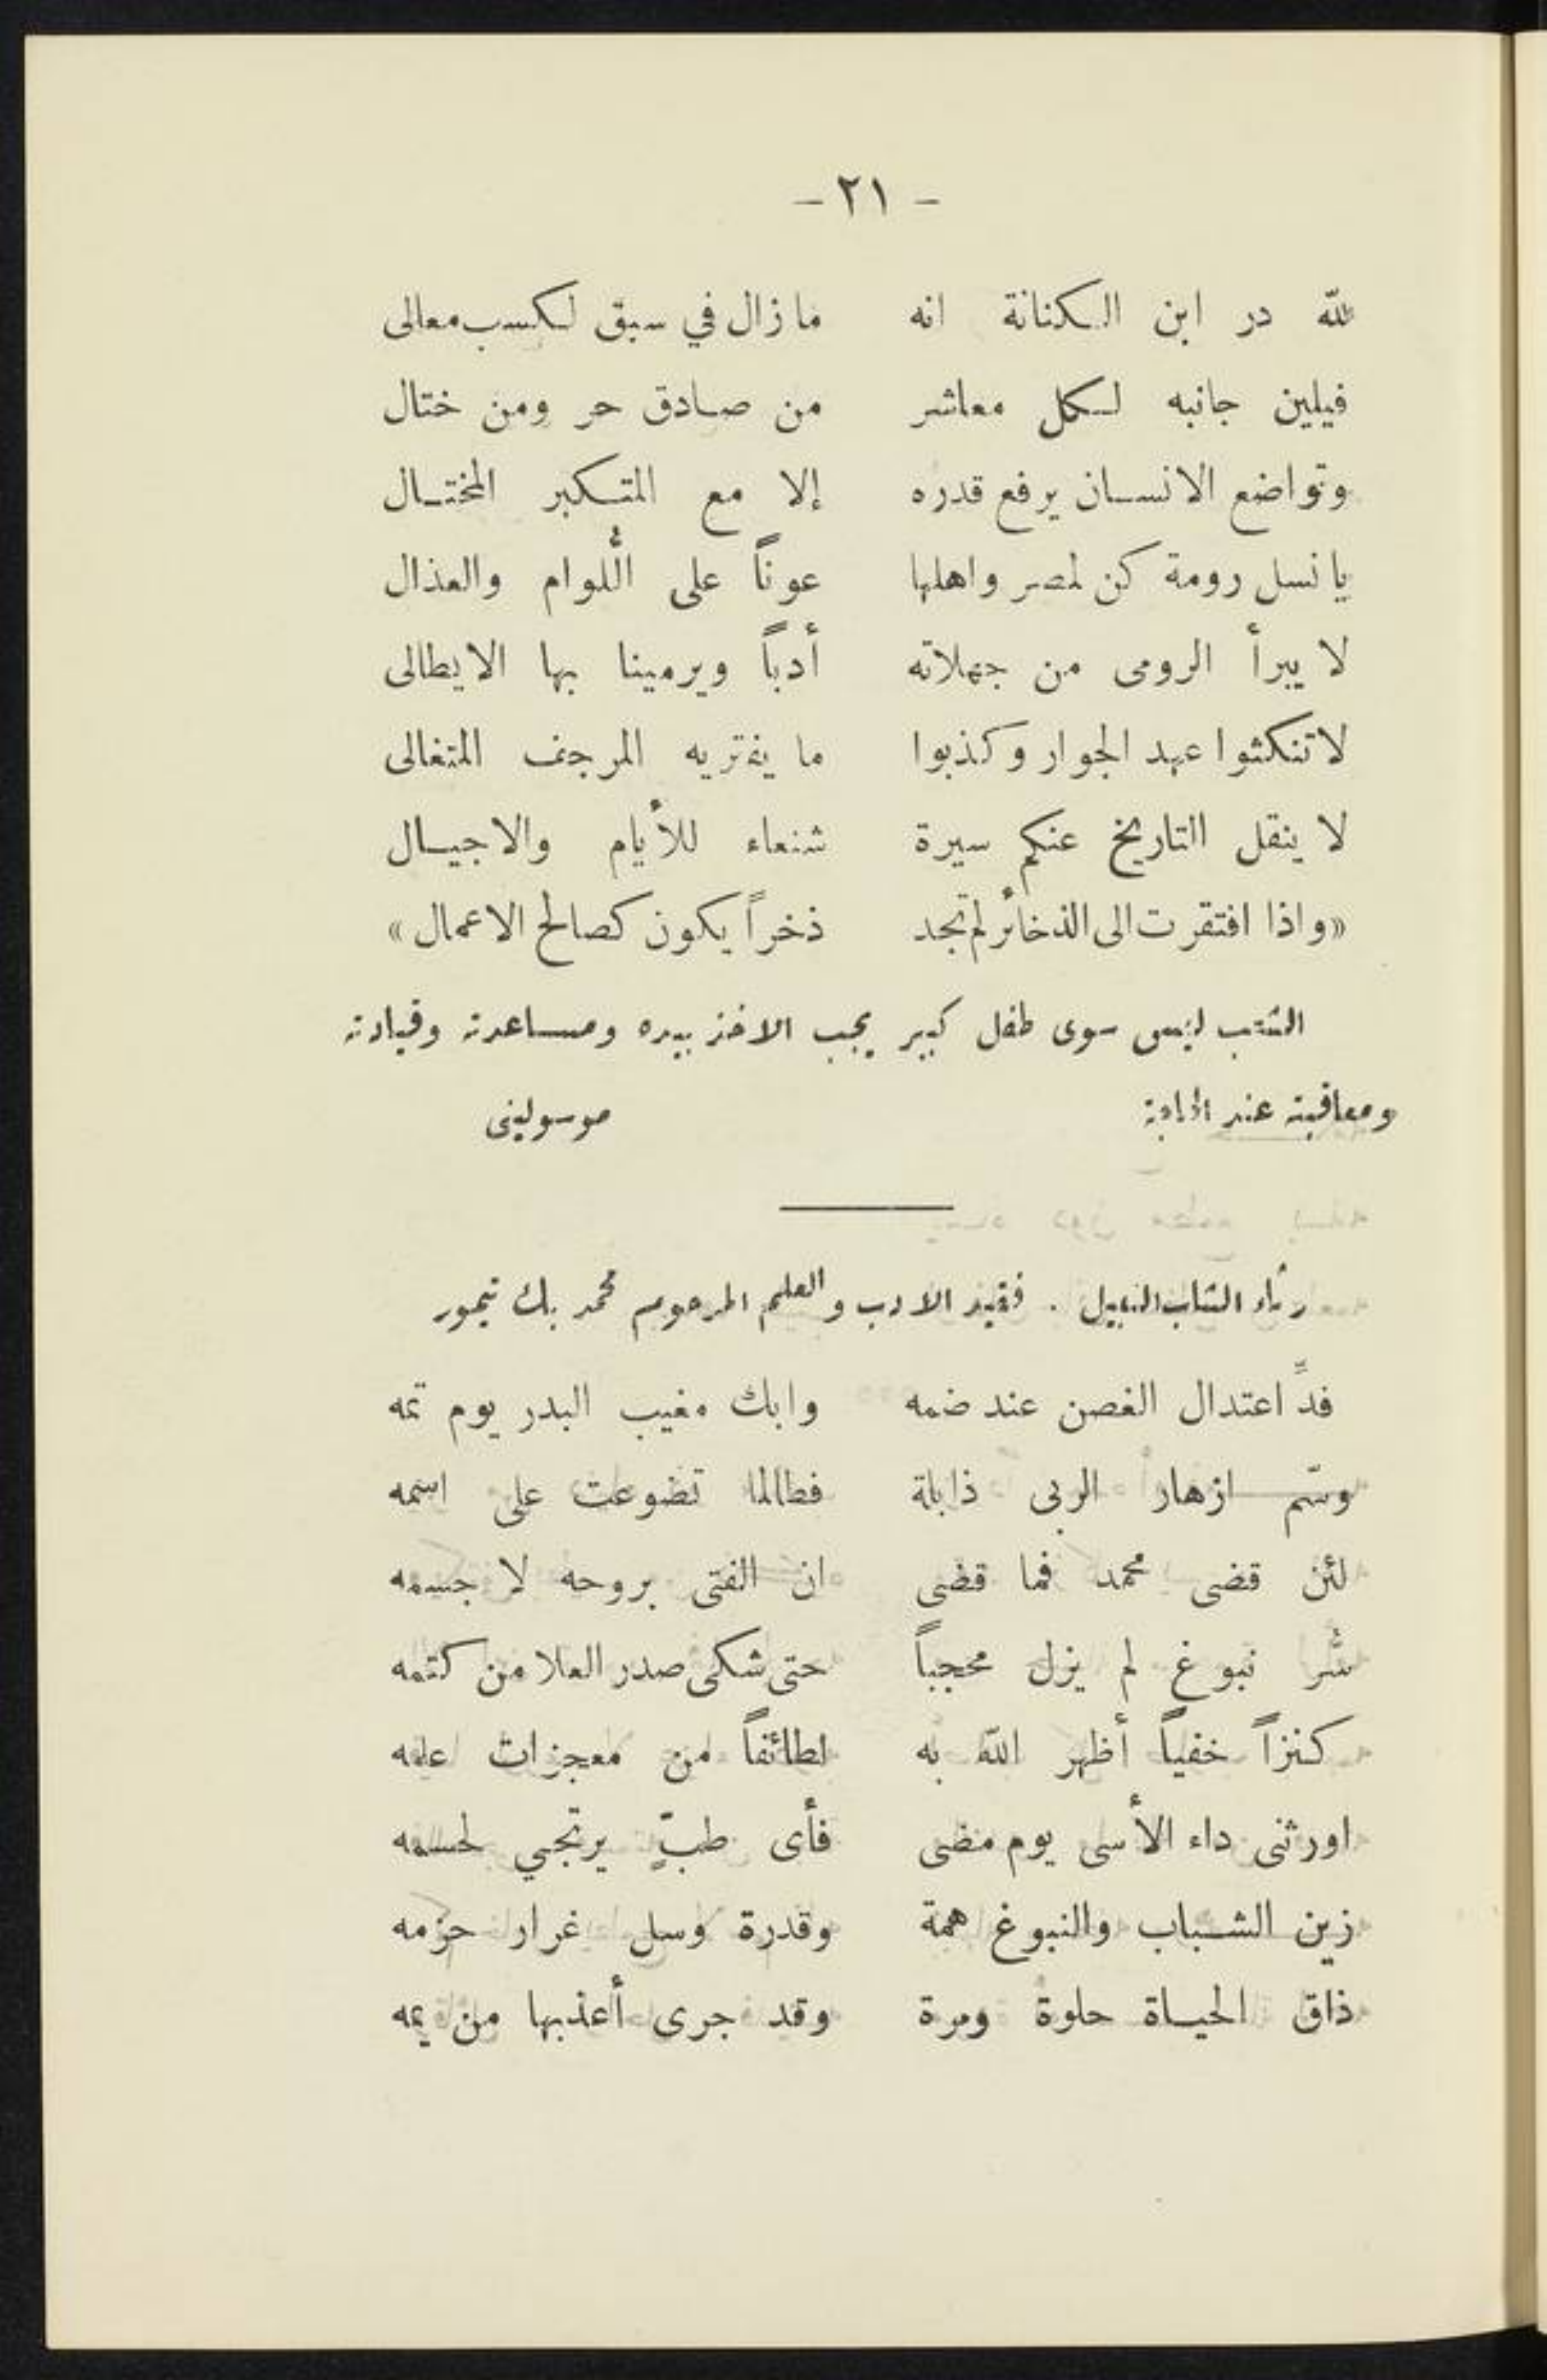 - ٢١ -
لله در ابن الكنانة انه ما زال في سبق لكسب معالى
فيلين جانبه لكل معاشر من صادق حر ومن ختال
وتواضع الانسان يرفع قدره إلا مع المتكبر المختال
يا نسل رومة كن لمصر واهلها عوناً على اللُّوام والعذال
لا يبرأ الرومى من جهلاته أدباً ويرمينا بها الايطالى
لا تنكثوا عهد الجوار وكذبوا ما يفتريه المرجف المتغالى
لا ينقل التاريخ عنكم سيرة شنعاء للأيام والاجيال
«واذا افتقرت الى الذخائر لم تجد ذخراً يكون كصالح الاعمال»
الشعب ليس سوى طفل كبير يجب الاخذ بيده ومساعدته وقيادته
ومعاقبته عند الحاجة موسولينى
رثاء الشاب النبيل . فقيد الادب والعلم المرحوم محمد بك تيمور
فدِّ اعتدال الغصن عند ضمه وابك مغيب البدر يوم تمه
وسّم ازهار الربى ذابلة فطالما تضوعت على اسمه
لئن قضى محمد فما قضى ان الفتى بروحه لا جسمه
سُّر نبوغ لم يزل محجباً حتى شكى صدر العلا من كتمه
كنزاً خفياً أظهر الله به لطائفاً من معجزات علمه
اورثنى داء الأسى يوم مضى فأى طبٍّ يرتجي لحسمه
زين الشباب والنبوغ همة وقدرة وسل غرار حزمه
ذاق الحياة حلوة ومرة وقد جرى أعذبها من يمه